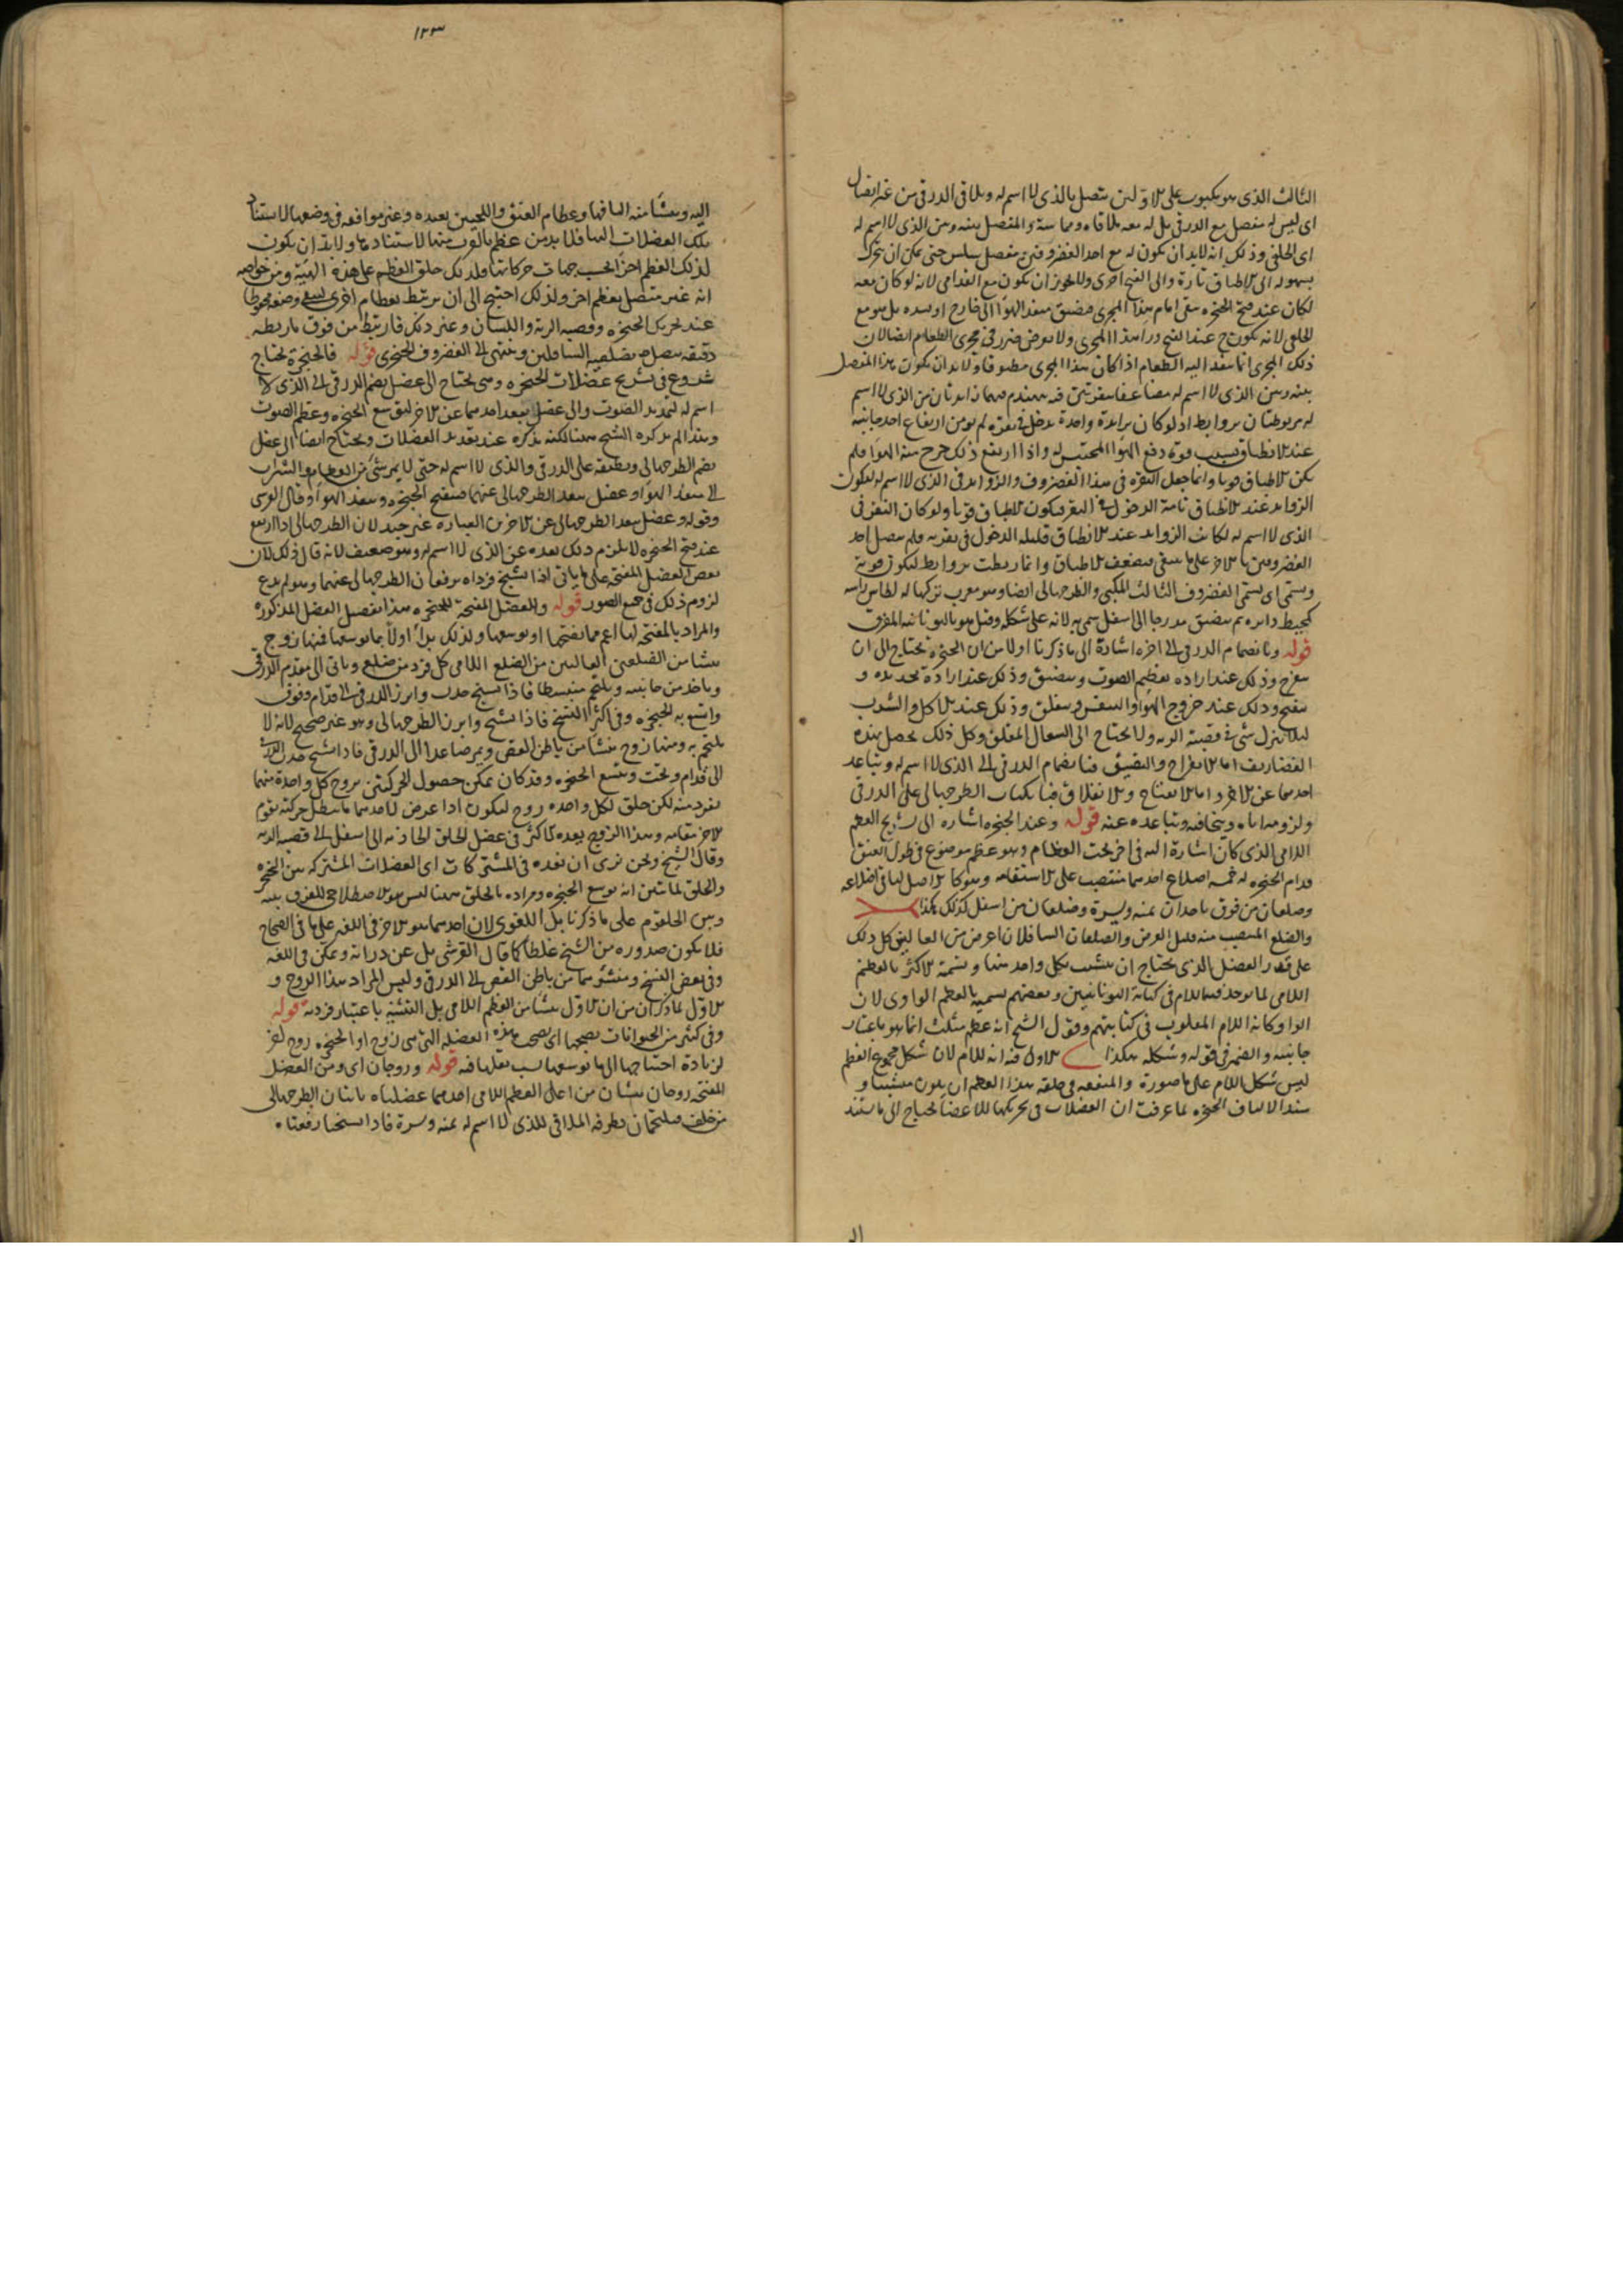 الثالث الذى هو مكبوب على الاولين متصل بالذى لا اسم له ويلاقى الدرقى من غير اتصال
اى ليس له مفصل مع الدرقى بل له معه ملاقاه ومماسة والمفصل بينه وبين الذى لا اسم له
اى الخلفى وذلك انه لا بد ان يكون له مع احد الغضروفين مفصل سلس حتى يمكن ان يتحرك
بسهوله الى الانطباق تارة والى الفتح اخرى ولا يجوز ان يكون مع القدامى لانه لو كان معه
لكان عند فتح الحنجره يبقى امام هذا المجرى فيضيق منفذ الهوا الى خارج او يسده بل هو مع
الخلفى لانه يكون ح عند الفتح ورا هذا المجرى ولا يعرض ضرر فى مجرى الطعام ايضا لان
ذلك المجرى انما ينفذ اليه الطعام اذا كان هذا المجرى مطبوقا ولا بد ان يكون هذا المفصل
بينه وبين الذى لا اسم له مضاعفا بنقرتين فيه يتهندم فيهما زايدتان من الذى لا اسم
له مربوطتان بروابط اذ لو كان بزايدة واحدة يدخل فى نقره لم يؤمن ارتفاع احد جانبيه
عند الانطباق بسبب قوة دفع الهوا المحتبس له واذا ارتفع ذلك خرج منه الهوا فلم
يكن الانطباق قويا وانما جعل النقره فى هذا الغضروف والزوايد فى الذى لا اسم له ليكون
الزوايد عند الانطباق تامة الدخول فى النقر فيكون الانطباق قويا ولو كان النقر فى
الذى لا اسم له لكانت الزوايد عند الانطباق قليله الدخول فى نقرته فلم يتصل احد
الغضروفين بالاخر على ما ينبغى فيضعف الانطباق وانما ربطت بروابط ليكون قوية
ويسمى اى يسمى الغضروف الثالث المكبى والطرجهالى ايضا وهو معرب تركهاله لطاس راسه
كمحيط دايره ثم يضيق مدرجا الى اسفل سمى به لانه على شكله وقيل هو باليونانيه المغرف
قوله وبانضمام الدرقى الى اخره اشارة الى ما ذكرنا اولا من ان الحنجره تحتاج الى ان
تنفرج وذلك عند اراده تعظيم الصوت وتضيق وذلك عند ارادة تحديده و
تنفتح وذلك عند خروج الهوا والتنفس وتنغلق وذلك عند الاكل والشرب
ليلا ينزل شى فى قصبة الريه ولا يحتاج الى السعال المقلق وكل ذلك يحصل بهذه
الغضاريف اما الانفراج والتضيق فبانضمام الدرقى الى الذى لا اسم له وتباعد
احدهما عن الاخر واما الانفتاح والانغلاق فبانكباب الطرجهالى على الدرقى
ولزومه اياه وبتجافيه وتباعده عنه قوله وعند الحنجره اشاره الى تشريح العظم
اللامى الذى كان اشارة اليه فى اخر بحث العظام وهو عظم موضوع فى طول العنق
قدام الحنجره له خمسه اضلاع احدهما منتصب على الاستقامه وهو كالاصل لباقى اضلاعه
وضلعان من فوق ياخذان يمنه ويسرة وضلعان من اسفل كذلك هكذا
والضلع المنتصب منه قليل العرض والضلعان السافلان اعرض من العاليين كل ذلك
على قدر العضل الذى يحتاج ان يتشبث بكل واحد منها ويسميه الاكثر بالعظم
اللامى لما يوجد فيه اللام فى كتابة اليونانيين وبعضهم يسميه بالعظم الواوى لان
الواو كانه اللام المقلوب فى كتابتهم وقول الشيخ انه عظم مثلث انما هو باعتبار
جانبيه والضمير فى قوله وشكله هكذا الاول فيه انه للام لان شكل مجموع العظم
ليس شكل اللام على ما صورة والمنفعه فى خلقه هذا العظم ان يكون متشبثا و
سندا لالياف الحنجره لما عرفت ان العضلات فى تحريكها للاعضا يحتاج الى ما تستند
الـ
١٢٣
اليه وينشا منه اليافها وعظام العنق واللحيين بعيده وغير موافقه فى وضعها لاستناد
تلك العضلات اليها فلا بد من عظم بالقرب منها لاستنادها ولا بد ان يكون
لذلك العظم اجزا بحسب جهات حركاتها ولذلك خلق العظم على هذه الهيئة ومن خواصه
انه غير متصل بعظم اخر ولذلك احتيج الى ان يرتبط بعظام اخرى ليبقى وضعه محفوظا
عند تحريك الحنجره وقصبه الريه واللسان وغير ذلك فارتبط من فوق باربطه
دقيقه يتصل بضلعيه السافلين وينتهى الى الغضروف الحنجرى قوله فالحنجرة تحتاج
شروع فى تشريح عضلات الحنجره وهى تحتاج الى عضل يضم الدرقى الى الذى لا
اسم له لتحديد الصوت والى عضل يبعد احدهما عن الاخر ليتسع الحنجره وعظم الصوت
وهذا لم يذكره الشيخ هنا لكنه يذكره عند تعديد العضلات وتحتاج ايضا الى عضل
يضم الطرجهالى ويطبقه على الدرقى والذى لا اسم له حتى لا يمر شى من الطعام والشراب
الى منفذ الهوا وعضل يبعد الطرجهالى عنهما فينفتح الحنجره وينفذ الهوا وقال القرشى
وقوله وعضل يبعد الطرجهالى عن الاخرين العباره غير جيد لان الطرجهالى اذا ارتفع
عند فتح الحنجره لا يلزم ذلك بعده عن الذى لا اسم له وهو ضعيف لانه قال ذلك لان
بعض العضل المفتحه على ما ياتى اذا تشنج فرداه يرفعان الطرجهالى عنهما وهو لم يدع
لزوم ذلك فى جميع الصور قوله والعضل المفتحة للحنجره هذا تفصيل العضل المذكوره
والمراد بالمفتحه لها اعم مما يفتحها او يوسعها ولذلك بدا اولا بما يوسعها فمنها زوج
ينشا من الضلعين العاليين من الضلع اللامى كل فرد من ضلع وياتى الى مقدم الدرقى
وياخذ من جانبيه ويلتحم منبسطا فاذا تشنج جذب وابرز الدرقى الى قدام وفوق
واتسع به الحنجره وفى اكثر النسخ فاذا تشنج وابرز الطرجهالى وهو غير صحيح لانه لا
يلتحم به ومنها زوج ينشا من باطن القص ويمر صاعدا الى الدرقى فاذا تشنج جذب الدرقى
الى قدام وتحت وتتسع الحنجره وقد كان يمكن حصول الحركتين بزوج كل واحدة منهما
بفرد منه لكن خلق لكل واحده زوج ليكون اذا عرض لاحدهما ما يبطل حركته يقوم
الاخر مقامه وهذا الزوج يعده الاكثر فى عضل الحلق الجاذبه الى اسفل الى قصبه الريه
وقال الشيخ ونحن نرى ان نعده فى المشتركات اى العضلات المشتركه بين الحنجره
والحلق لما تبين انه يوسع الحنجره ومراده بالحلق ههنا ليس هو الاصطلاحى للفرق بينه
وبين الحلقوم على ما ذكرنا بل اللغوى لان احدهما هو الاخر فى اللغه على ما فى الصحاح
فلا يكون صدوره من الشيخ غلطا كما قال القرشى بل عن درايه وتمكن فى اللغه
وفى بعض النسخ ومنشوهما من باطن القص الى الدرقى وليس المراد هذا الزوج و
الاول لما ذكر ان من ان الاول ينشا من العظم اللامى بل التثنيه باعتبار فرديه قوله
وفى كثير من الحيوانات يصحبها اى يصحب هذه العضله التى هى زوج او الحنجره زوج اخر
لزيادة احتياجها الى ما يوسعها بسبب ثقلها فيه قوله وزوجان اى ومن العضل
المفتحه زوجان ينشان من اعلى العظم اللامى احدهما عضلتاه ياتيان الطرجهالى
من خلف فيلتحمان بطرفه الملاقى للذى لا اسم له يمنه ويسرة فاذا تشنجتا رفعتا